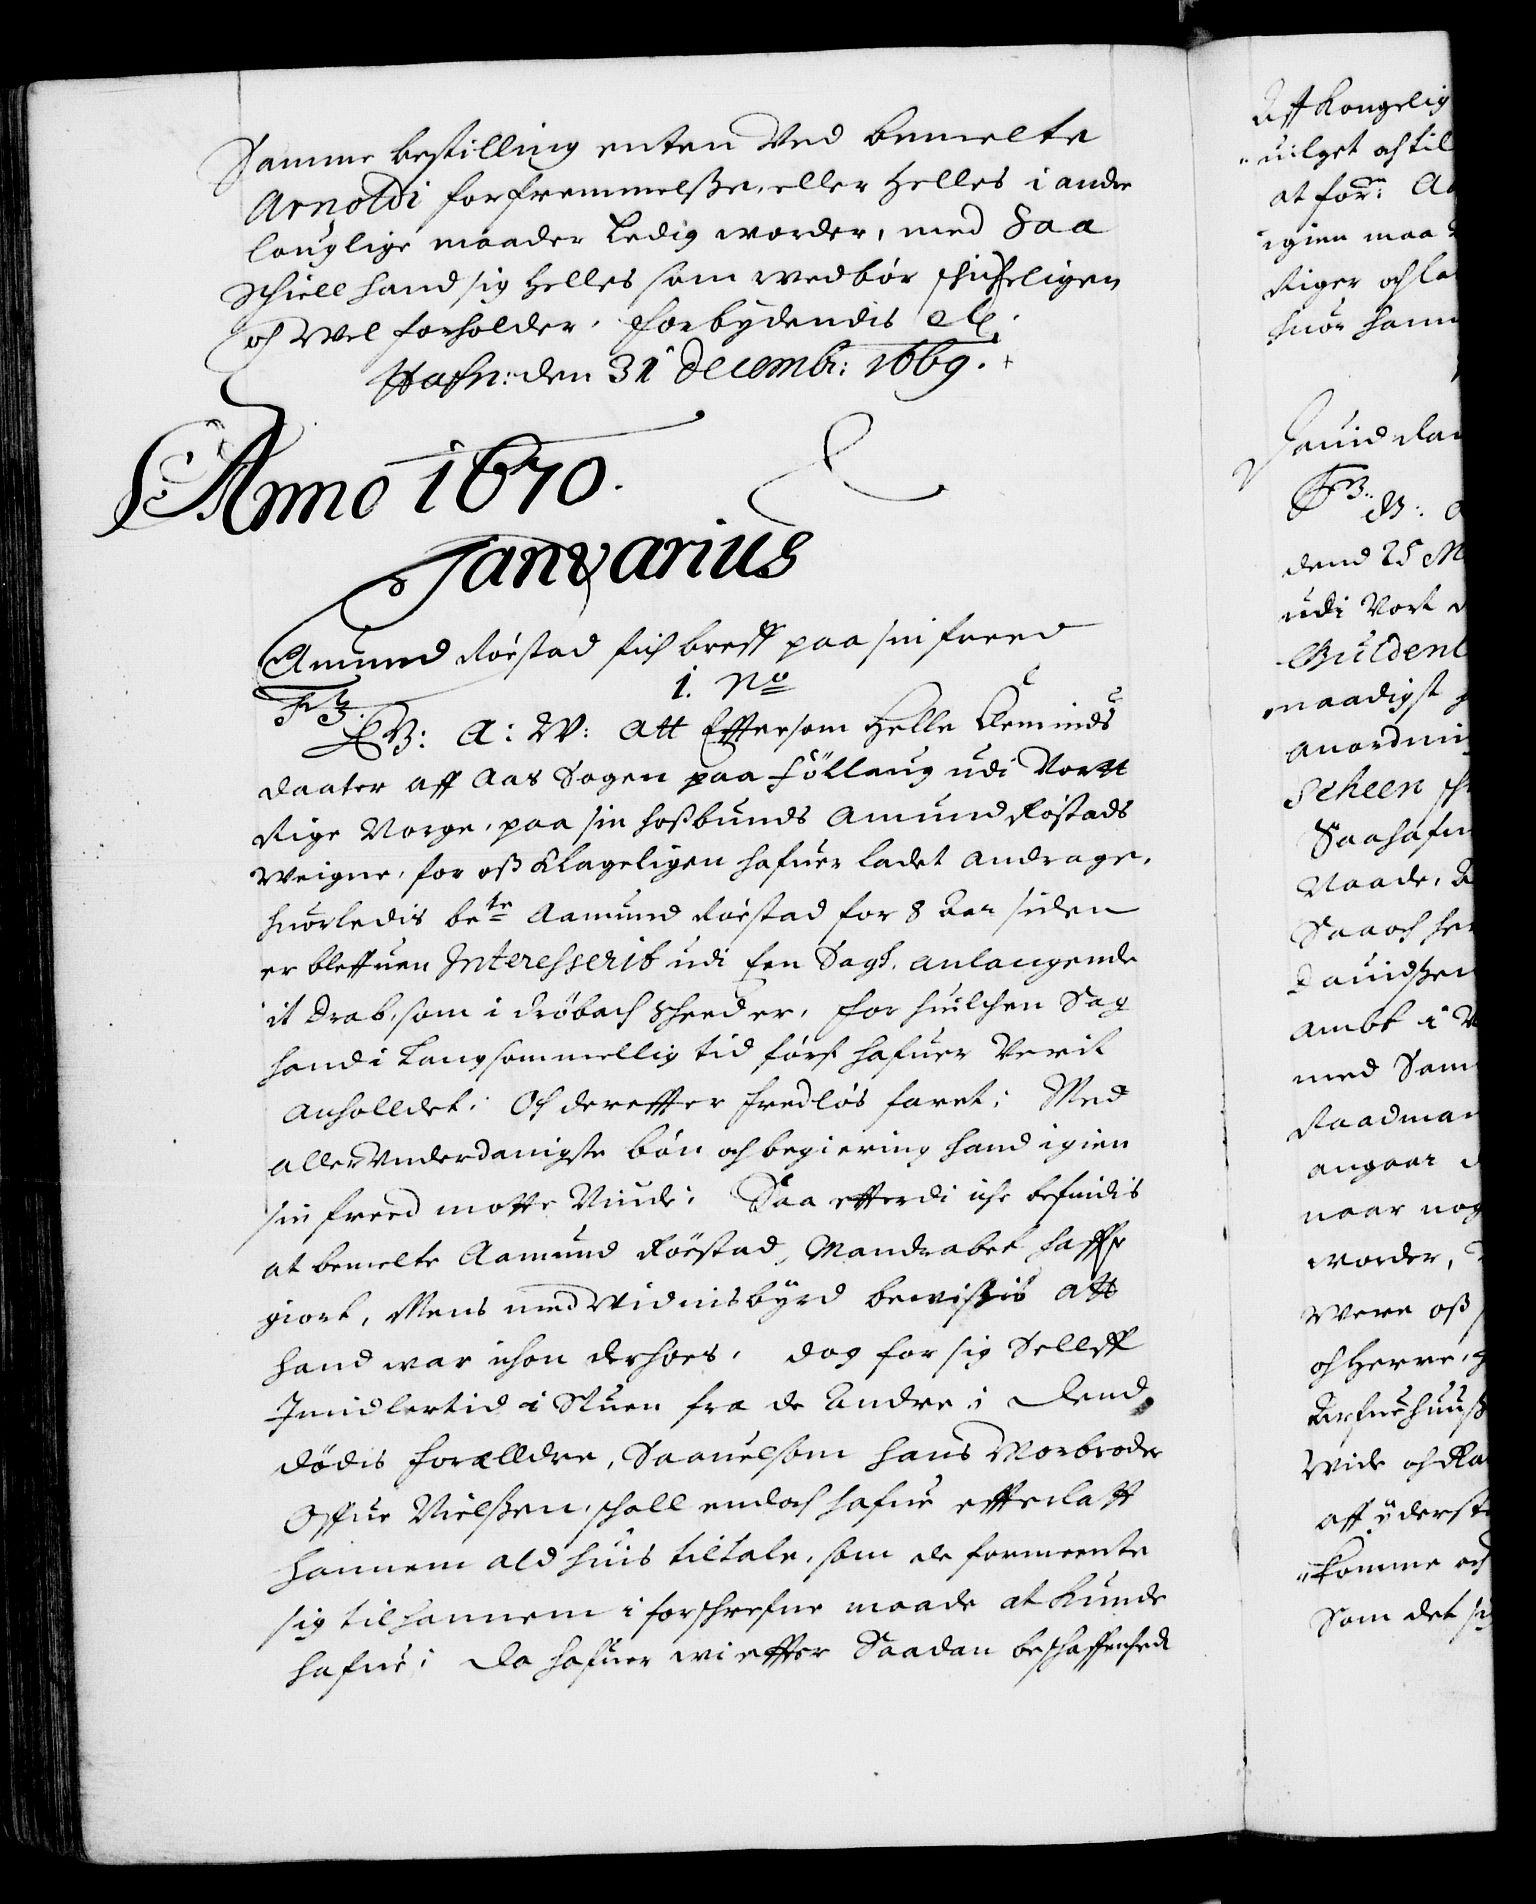 Samme bestilling enten Ved bemelte
Arnoldi forfremmelsße, eller Helles i andre
louglige maader Ledig worder, med Saa
schiell hand sig Helles som wedbör schicheligen
och Wel forholder. Forbydendis etc.
Hafn: den 31 Decemb: 1669.
Anno 1670.
Januarius
Amund Röestad fich breff paa sin freed
1. No
F 3.
G V: A: W: Att Eftersom Helle Cleminds
daater aff Aas Sogen paa Föllaug udi Vortt
Rige Norge, paa sin hoßbunds Amund Röstads
Weigne, for oß klageligen hafuer ladet andrage,
huorledis bete Aamund Röestad for 8 Aar siden
er bleffuen Interesserit udi Een Sagh, anlangende
it Drab, som i Dröbach Scheeder, for huilchen Sag
hand i Langsommellig tid först hafuer Verit
anholldet; Och dereffter fredlös faret; Med
allerUnderdanigste bön och begiering hand igien
sin freed motte Niude; Saa efterdi iche befindis
at bemelte Aamund Röestad, Mandrabet haffr
giort, Mens med Vidnisbyrd bewißis att
hand war ichon derhoes, dog for sig Sellff
Imidlertid i Stuen fra de Andre; Dend
dödis forælldre, Saauelsom hans Morbroder
Offue Nielßen, schall endoch hafue efterlatt
hannem ald huis tiltale, som de formeente
sig til hannem i forschrefne maade at kunde
hafue; Da hafuer wi effter Saadan beschaffenhed
Aff Kongelig
uilget och til
at forne: A
igien maa
Riger och la
huor hann
Dauid
G V:
dend 25 M
udi Vort
Guldenl
naadigst
anordnin
Scheen
Saa hafu
Naade,
Saa och
Dauidßen
ambt i
med Sam
Raadman
angaar
naar nog
worder,
Were oß
och Herre,
Arfuehuuß
Wide och Ra
aff yderst
komme och
Som det